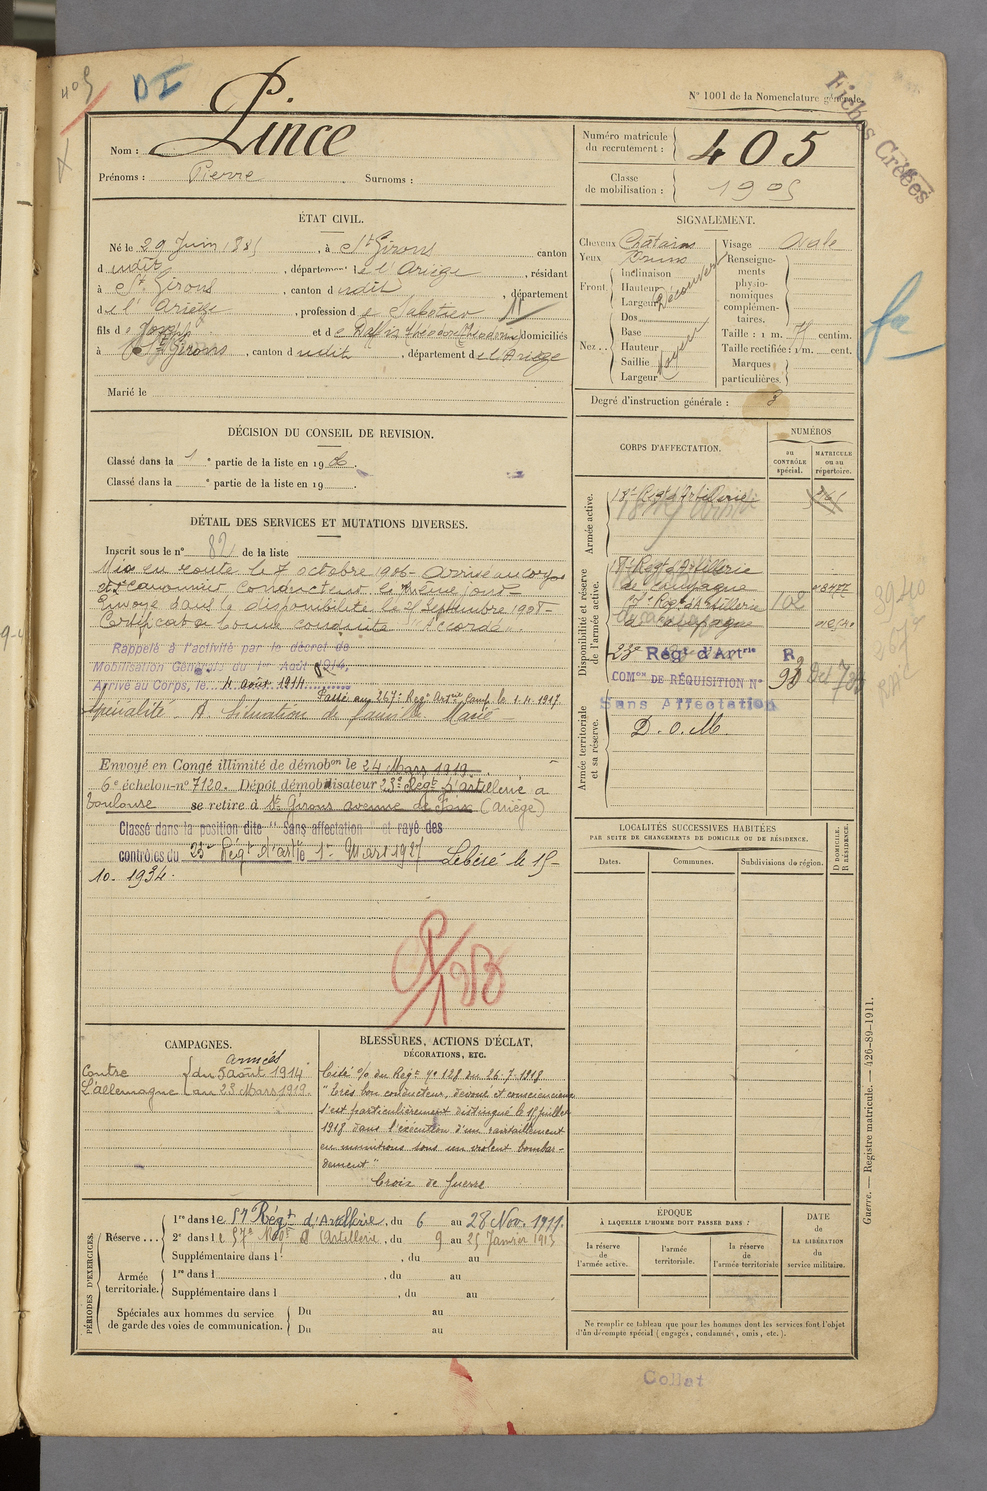 405
DI
N° 1001 de la Nomenclature générale.
Fiches Créées
Nom : Pince
Prénoms : Pierre Surnoms :
Numéro matricule du recrutement : 405
Classe de mobilisation : 1905
ÉTAT CIVIL.
Né le 29 Juin 1885, à St Girons canton
d udit, département de l'Ariège, résidant
à St Girons, canton d udit, département
de l'Ariège, profession de Sabotier
fils de Joseph et de domiciliés
à St Girons, canton d udit, département de l'Ariège
Marié le
SIGNALEMENT.
Cheveux Châtains
Yeux
Front Inclinaison
Hauteur
Largeur
Découvert
Nez Dos
Base
Hauteur
Saillie
Largeur
Moyen
Visage Ovale
Renseignements physionomiques complémentaires.
Taille : 1 m. centim.
Taille rectifiée : 1 m. cent.
Marques particulières.
Degré d'instruction générale : 3
DÉCISION DU CONSEIL DE REVISION.
Classé dans la 1e partie de la liste en 1906.
Classé dans la e partie de la liste en 19
DÉTAIL DES SERVICES ET MUTATIONS DIVERSES.
Inscrit sous le n° 82 de la liste
Mis en route le 7 octobre 1906 - Arrivé au corps
et 2e canonnier conducteur le même jour -
Envoyé dans la disponibilité le 25 Septembre 1908 -
Certificat de bonne conduite "Accordé".
Rappelé à l'activité par le décret de
Mobilisation Générale du 1er Août 1914,
Arrivé au Corps, le 4 août 1914
Passé au 267e Regt Artie Camp. le 1.4.1917.
Spécialité A Situation de famille Marié
Envoyé en Congé illimité de démobon le 24 Mars 1919.
6e échelon - n° 7120. Dépôt démobilisateur 23e Regt d'artillerie a
Toulouse se retire à St Girons avenue de Foix (Ariège)
Classé dans la position dite "Sans affectation" et rayé des
contrôles du 23e Régt d'artie 1er Mars 1927 Libéré le 15-
10. 1934.
CORPS D'AFFECTATION.
NUMÉROS
au CONTRÔLE spécial.
MATRICULE ou au répertoire.
Armée active.
18e Régt d'Artillerie
Disponibilité et réserve de l'armée active.
18e Regt d'Artillerie
de Campagne
57e Regt d'Artillerie 102
de Campagne
23e Régt d'Artrie R
COMon DE RÉQUISITION N°
Sans Affectation
Armée territoriale et sa réserve.
D. o. M.
LOCALITÉS SUCCESSIVES HABITÉES
PAR SUITE DE CHANGEMENTS DE DOMICILE OU DE RÉSIDENCE.
Dates. Communes. Subdivisions de région.
D DOMICILE. R RÉSIDENCE.
CAMPAGNES.
Armées
Contre du 5 août 1914
L'allemagne au 23 Mars 1919.
BLESSURES, ACTIONS D'ÉCLAT, DÉCORATIONS, ETC.
Cité O/ du Regt n° 128 du 26.7.1918
"Très bon conducteur, dévoué et consciencieux
s'est particulièrement distingué le 15 juillet
1918 dans l'exécution d'un ravitaillement
en munitions sous un violent bombar-
dement"
Croix de Guerre
PÉRIODES D'EXERCICES.
Réserve... 1re dans le 57e Régt d'Artillerie, du 6 au 28 Nov. 1911.
2e dans le 57e Régt d'Artillerie, du 9 au 25 Janvier 1913
Supplémentaire dans l , du au
Armée territoriale. 1re dans l , du au
Supplémentaire dans l , du au
Spéciales aux hommes du service de garde des voies de communication. Du au
Du au
ÉPOQUE
À LAQUELLE L'HOMME DOIT PASSER DANS :
la réserve de l'armée active.
l'armée territoriale.
la réserve de l'armée territoriale
DATE DE LA LIBÉRATION du service militaire.
Ne remplir ce tableau que pour les hommes dont les services font l'objet
d'un décompte spécial (engagés, condamnés, omis, etc.).
Guerre. — Registre matricule. — 426-89-1911.
Collat